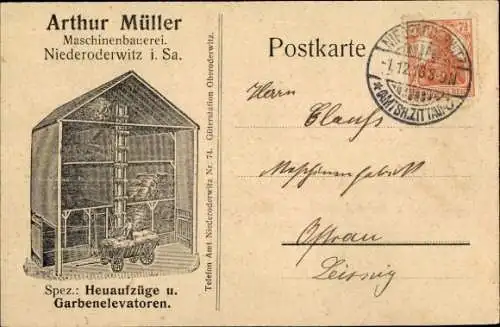 Arthur Müller
Maschinenbauerei.
Niederoderwitz i. Sa.
Telefon Amt Niederoderwitz Nr. 74. Güterstation Oberoderwitz.
Spez.: Heuaufzüge u.
Garbenelevatoren.
Postkarte
-1.12.
Herrn
Clauß
Maschinenfabrik
Ostrau
Leipzig